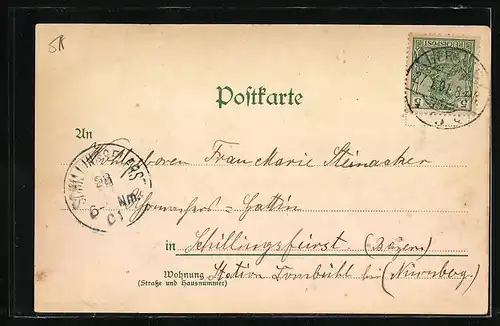 5K
REICHSPOST
5 5
Postkarte
An
Wohlgeboren Frau Marie Steinacker
SCHILLINGSFÜRST
28
Nm.
01
Gattin
in Schillingsfürst. (Bayern)
Wohnung Station Dombühl bei (Nürnberg.)
(Straße und Hausnummer)